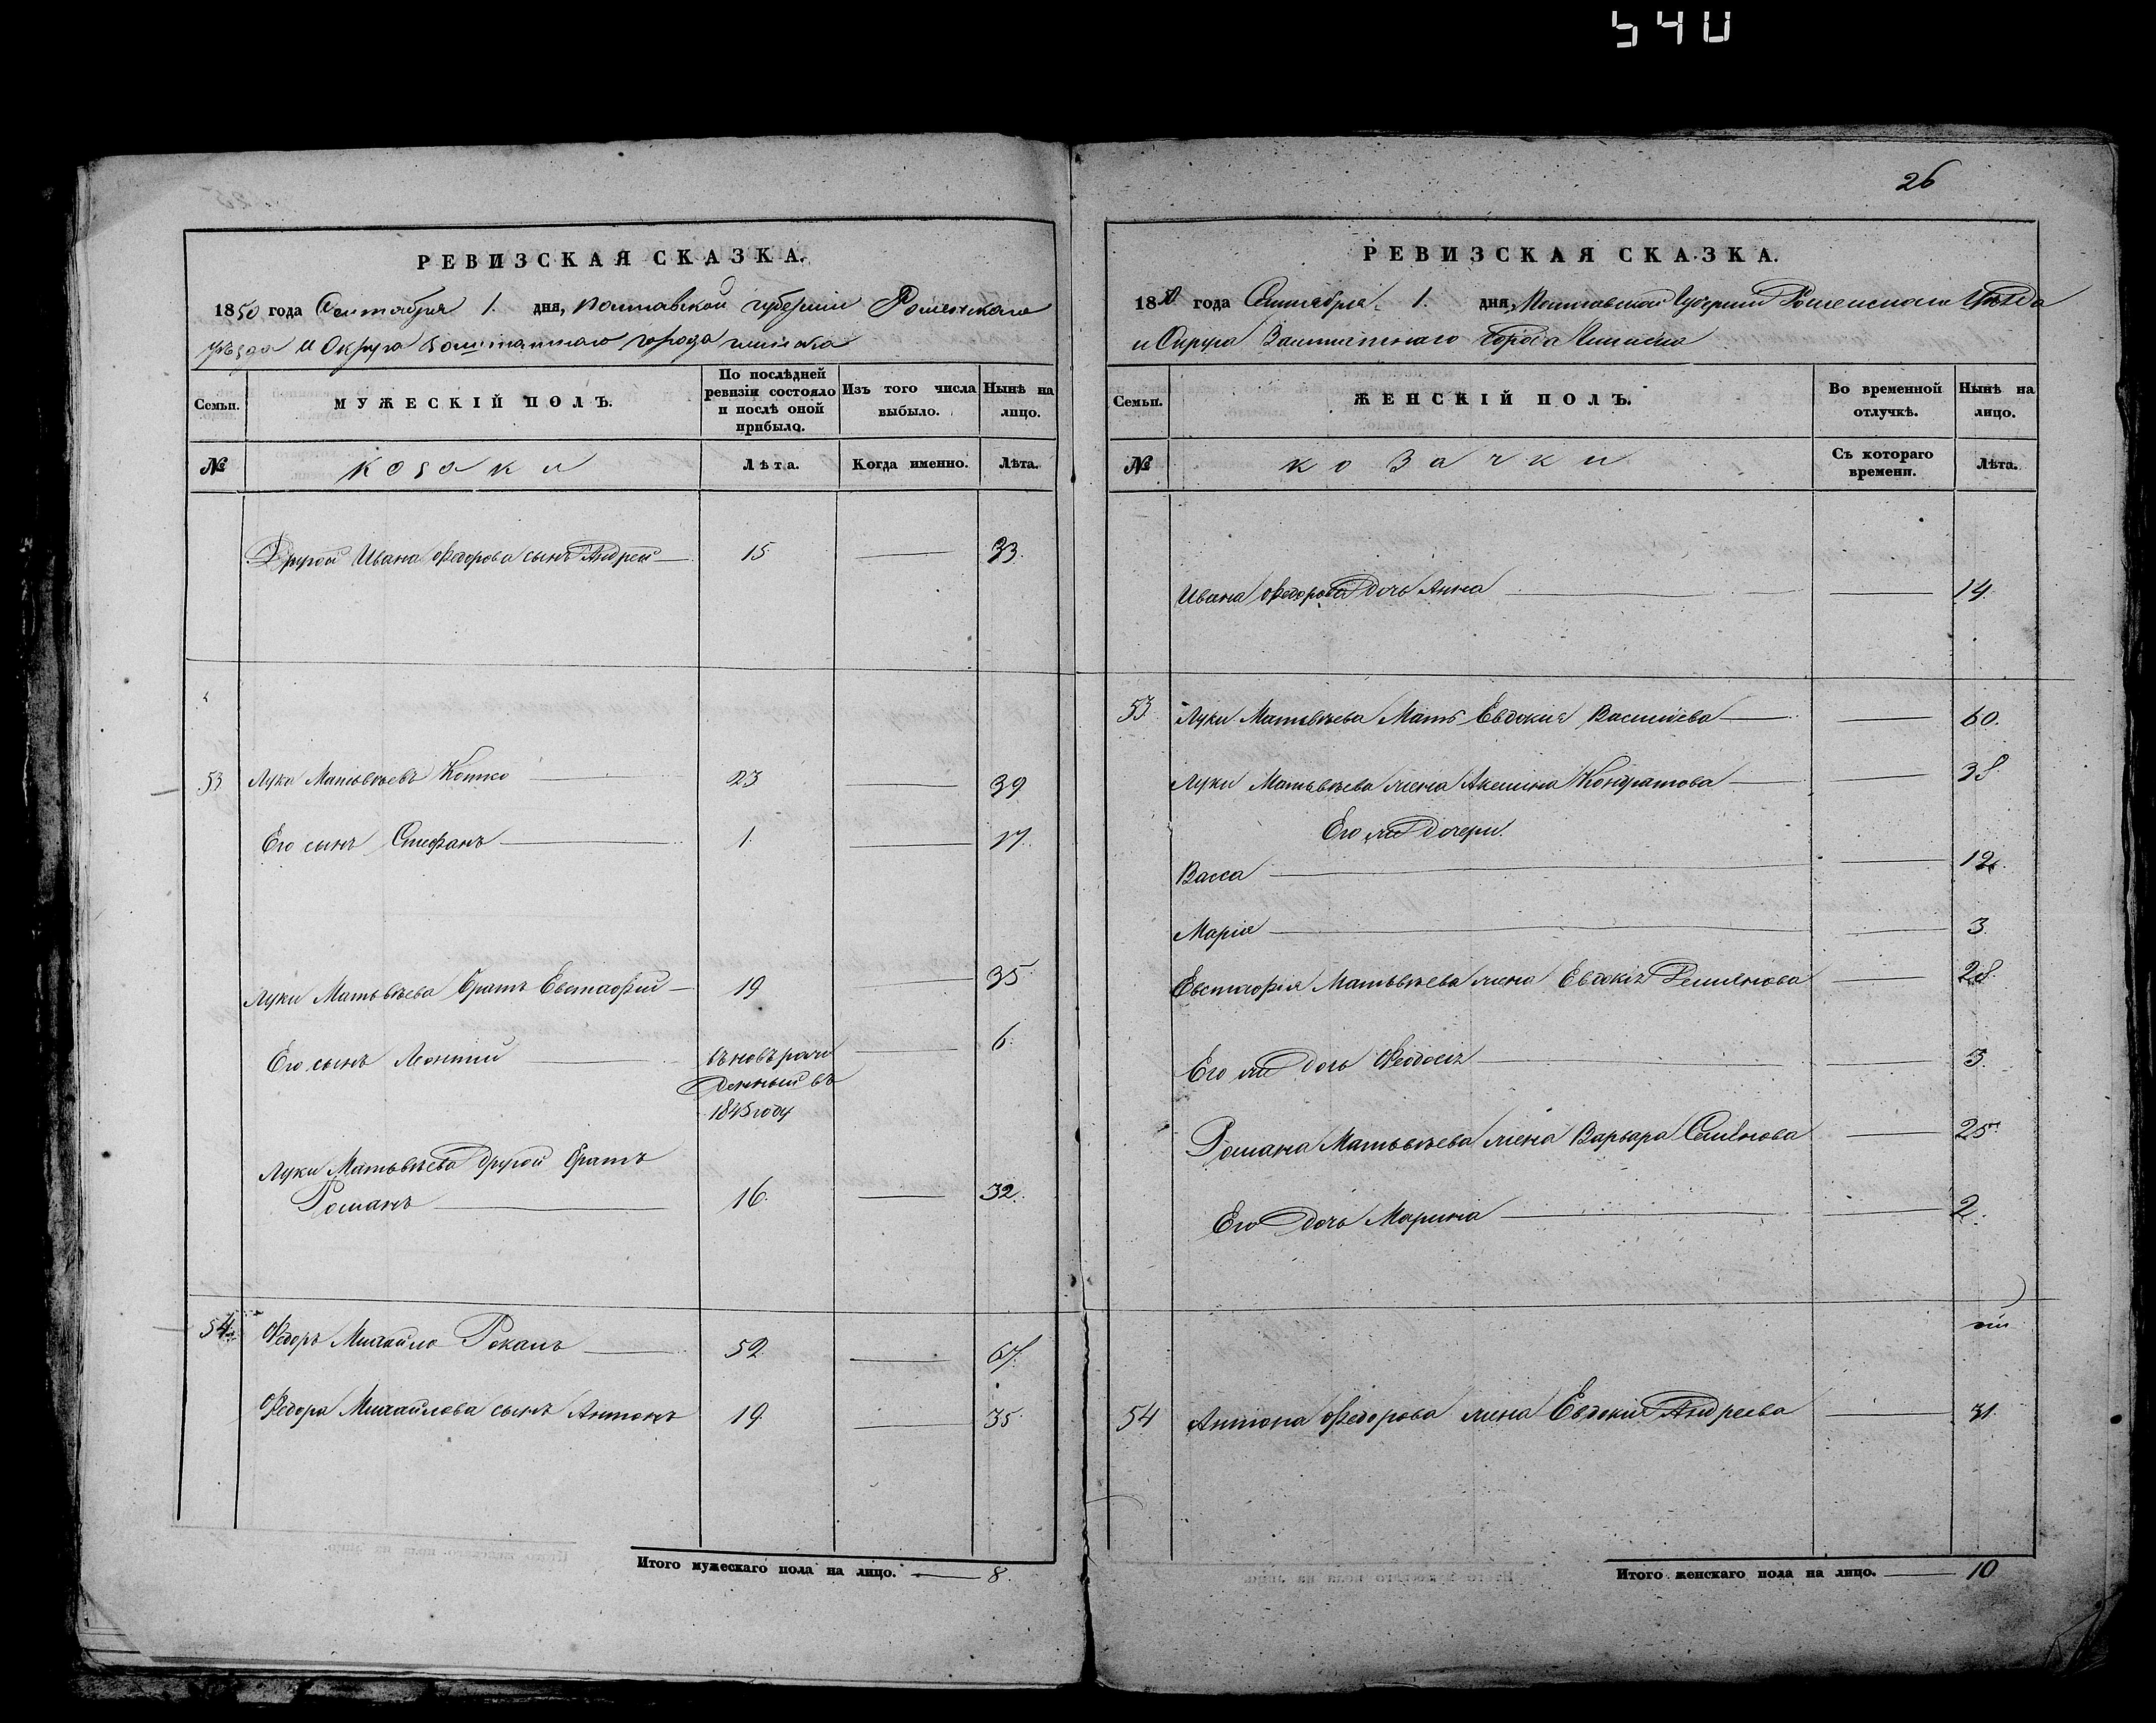 540
РЕВИЗСКАЯ СКАЗКА.
1850 года Сентября 1. дня, Полтавской губернии Роменского
уѣзда и Округа Заштатного города
Семьи.
МУЖЕСКІЙ ПОЛЪ.
По послѣдней ревизіи состояло и послѣ оной прибыло.
Изъ того числа выбыло.
Нынѣ на лицо.
№
козаки
Лѣта.
Когда именно.
Лѣта.
Другой Ивана Федорова сынъ Андрей 15 33.
53 Лука Матьвѣевъ 23 39
Его сынъ Стефанъ 1. 17.
Луки Матьвѣева братъ Евстафий 19 35
Его сынъ Леонтий вновь рож 6.
денный въ
1845 году
Луки Матьвѣева другой братъ
Романъ 16. 32.
54. Федоръ Михайло 52 67.
Федора Михайлова сынъ Антонъ 19 35.
Итого мужескаго пола на лицо. 8.
26
РЕВИЗСКАЯ СКАЗКА.
1850 года Сентября 1. дня, Полтавской Губернии Роменского Уѣзда
и Округа Заштатного города
Семьи.
ЖЕНСКІЙ ПОЛЪ.
Во временной отлучкѣ.
Нынѣ на лицо.
№
козачки
Съ котораго времени.
Лѣта.
Ивана Федорова дочь Анна 14
53. Луки Матьвѣева Мать Евдокия Васильева 60.
Луки Матьвѣева жена Акилина Кондратова 38.
Его же дочери.
Васса 12.
Мария 3
Евстафия Матьвѣева жена Евдокия Семенова 28.
Его же дочь Феодосия 3.
Романа Матьвѣева жена Варвара Семенова 25.
Его дочь Марина 2.
54 Антона Федорова жена Евдокия Андреева 31.
Итого женскаго пола на лицо. 10